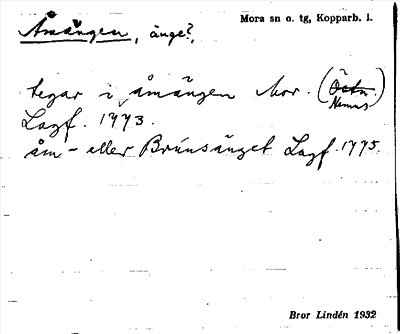 Åmängen, änge?, Mora sn o. tg, Kopparb. l.
tegar i åmängen Mor. (Östn Nemus)
Lagf. 1773.
åm- eller Brúnsänget Lagf. 1775.
Bror Lindén 1932